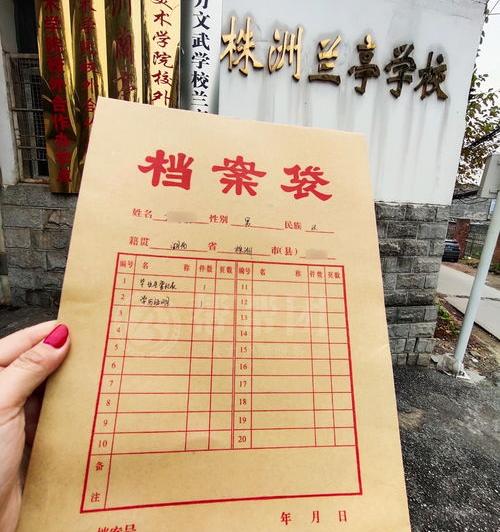 美术学院校外
方文武学校兰
株洲兰亭学校
档案袋
姓名 性别 男 民族 汉
籍贯 湖南 省 株洲 市(县)
编号 名 称 件数 页数 编号 名 称 件数 页数
1 毕业生登记表 1 11
2 学历证明 1 12
3 13
4 14
5 15
6 16
7 17
8 18
9 19
10 20
备注
年 月 日